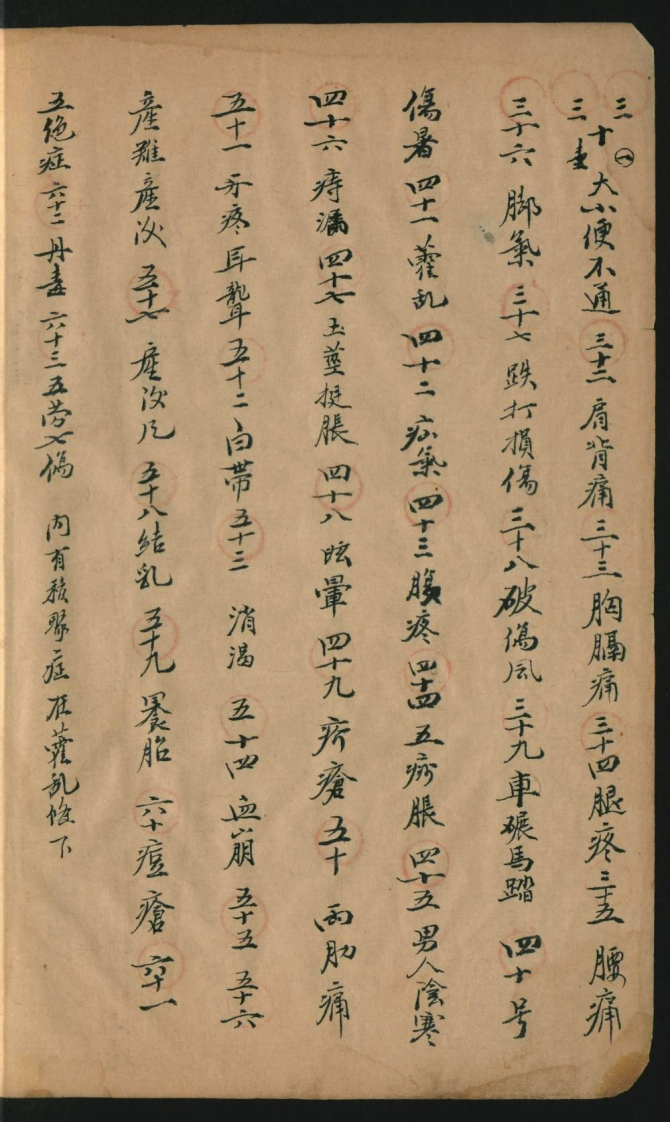 三十㊀大小便不通 三十二 肩背痛 三十三 胸膈痛 三十四 腿疼 三十五 腰痛
三十六 脚氣 三十七 跌打損傷 三十八 破傷风 三十九 車碾馬踏 四十号
傷暑 四十一 藿乱 四十二 疝氣 四十三 腹疼 四十四 五 脹 四十五 男人陰寒
四十六 痔漏 四十七 玉莖挺脹 四十八 眩暈 四十九 疥瘡 五十 两肋痛
五十一 牙疼耳聾 五十二 白带 五十三 消渴 五十四 血崩 五十五 五十六
産難産後 五十七 産後风 五十八 結乳 五十九 胎 六十 痘瘡 六十一
五绝症 六十二 丹毒 六十三 五劳七傷 内有積聚症在藿乱條下